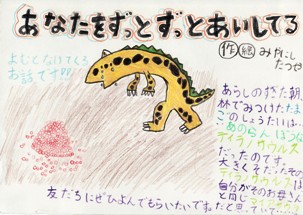 あなたをずっとずっとあいしてる
作 絵 みやにし
たつや
よむとなけてくる
お話です!!
あらしのすぎた朝、
林でみつけたたま
ごのしょうたいは…
あのらんぼうな
ティラノサウルス
だったのです。
大きくそだったその
ティラノサウルスは
自分がそのお母さん
と同じマイアサウラ
だと思っていて……
友だちにぜひよんでもらいたいです。